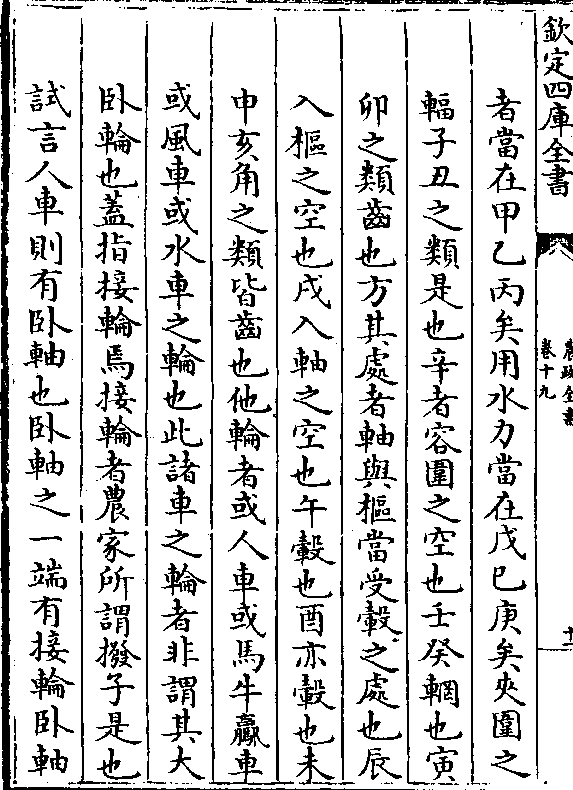 欽定四庫全書
農政全書
卷十九
十二
者當在甲乙丙矣用水力當在戊巳庚矣夾圍之
輻子丑之類是也辛者容圍之空也壬癸輞也寅
卯之類齒也方其處者軸與樞當受轂之處也辰
入樞之空也戌入軸之空也午轂也酉亦轂也未
申亥角之類皆齒也他輪者或人車或馬牛驘車
或風車或水車之輪也此諸車之輪者非謂其大
卧輪也蓋指接輪焉接輪者農家所謂撥子是也
試言人車則有卧軸也卧軸之一端有接輪卧軸